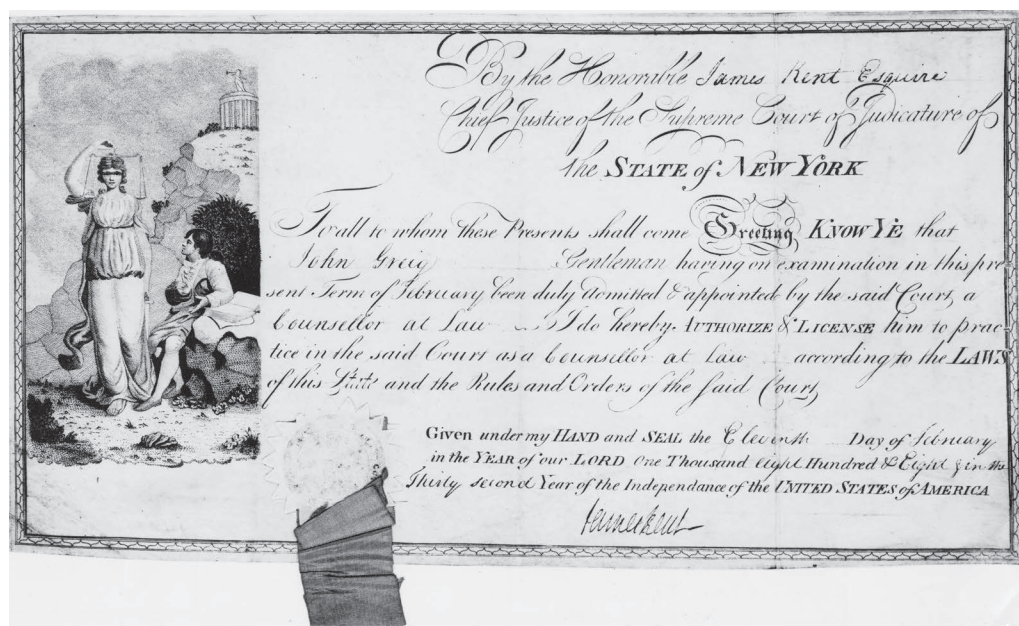 By the Honorable James Kent Esquire
Chief Justice of the Supreme Court of Judicature of
the STATE of NEW YORK
To all to whom these Presents shall come Greeting KNOW YE that
John Greig Gentleman having on examination in this pre
sent Term of February been duly admitted & appointed by the said Court, a
Counsellor at Law I do hereby AUTHORIZE & LICENSE him to prac-
tice in the said Court as a Counsellor at Law according to the LAWS
of this State and the Rules and Orders of the said Court,
Given under my HAND and SEAL the Eleventh Day of February
in the YEAR of our LORD One Thousand eight Hundred & Eight & in the
Thirty second Year of the Independance of the UNITED STATES of AMERICA
James Kent